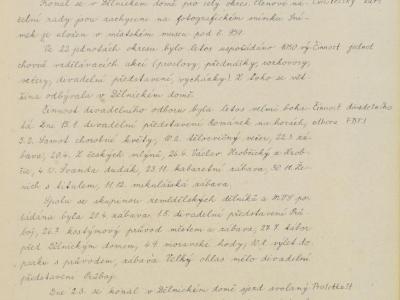 konal se v Dělnickém domě pro celý okres. Členové na
selní rady jsou zachyceni na fotografickém snímku. Sní
mek je uložen v městském museu pod č. 939.
Ve 22 jednotách okresu bylo letos uspořádáno 1080 výchovně vzdělávacích akcí (proslovy, přednášky, rozhovory,
večery, divadelní představení, vycházky). Z toho se vět
šina odbývala v Dělnickém domě.
Činnost divadelního odboru byla letos velmi boha
tá. Dne 15.1. divadelní představení Románek na horách,
5.2. Samost chorobné květy, 10.2. Silvestrický večer, 22.3. zá
bava, 20.4. Z českých mlýnů, 26.4. Václav Hrobčický z Hrob
čic, 4.10. Švanda dudák, 23.11. kabaretní zábava, 30.11. Že
nich s titulem, 11.12. mikulášská zábava.
Spolu se skupinou zemědělských dělníků a
řádána byla 21.4. zábava, 1.5. divadelní představení Prů
boj, 26.3. kostýmový průvod městem a zábava, 27.7. tábor
před Dělnickým domem, 4.9. moravské hody, výlet do
parku s průvodem, zábava. Velký ohlas mělo divadelní
představení Průboj.
Dne 2.3. se konal v Dělnickém domě sjezd svolaný